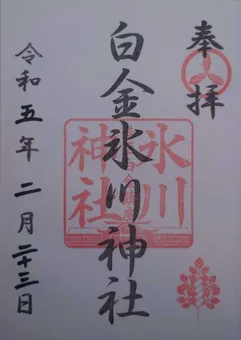 奉拝
白金氷川神社
氷川
神社
令和五年二月二十三日